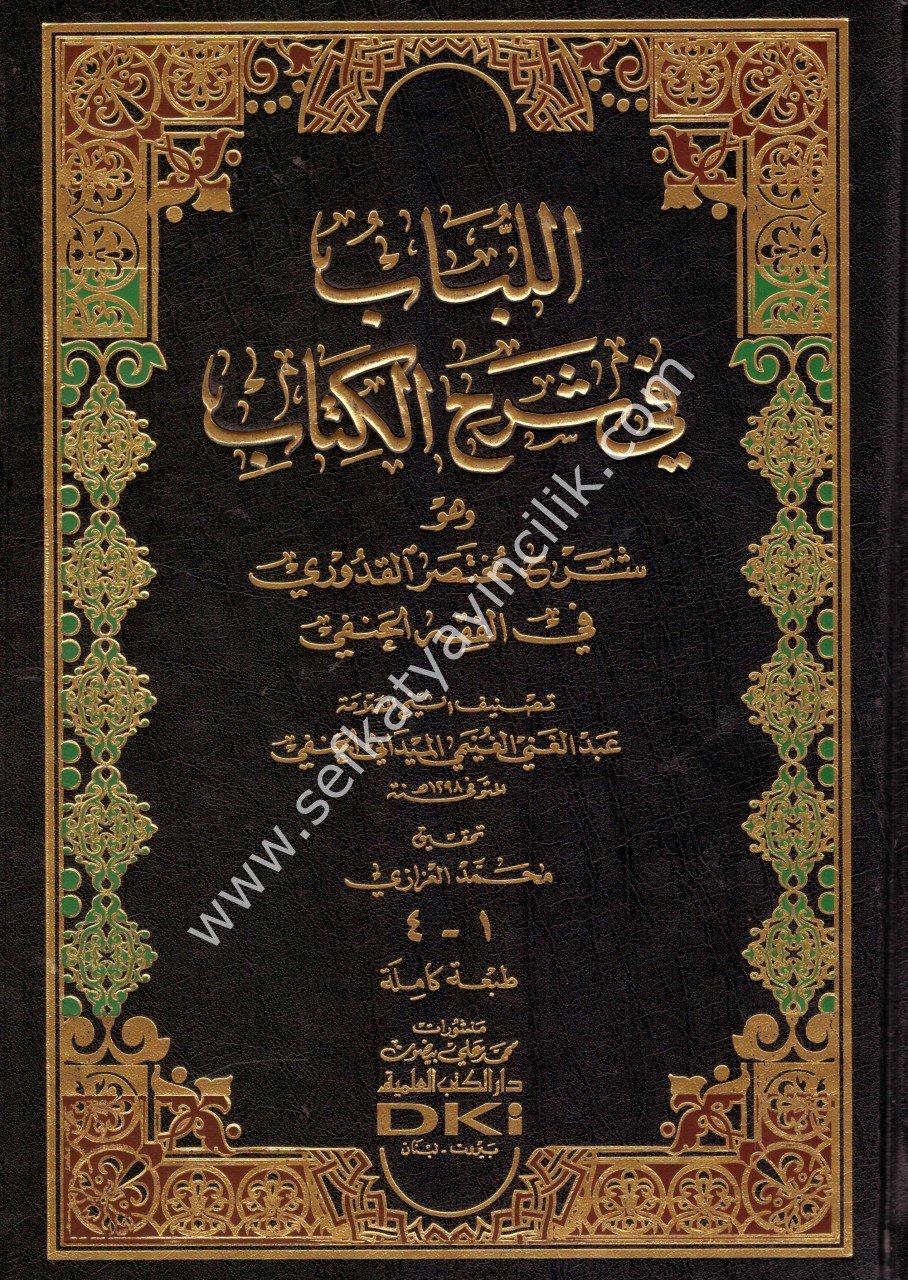 اللُّبَابُ
في شَرْحِ الكِتَابِ
وهو
شرح مختصر القدوري
في الفقه الحنفي
تصنيف الشيخ العلامة
عبد الغني الغنيمي الميداني الحنفي
المتوفى ١٢٩٨هـ سنة
تحقيق
محمد العزازي
١ - ٤
طبعة كاملة
منشورات
محمد علي بيضون
دار الكتب العلمية
DKi
بيروت - لبنان
www.sefkatyayincilik.com